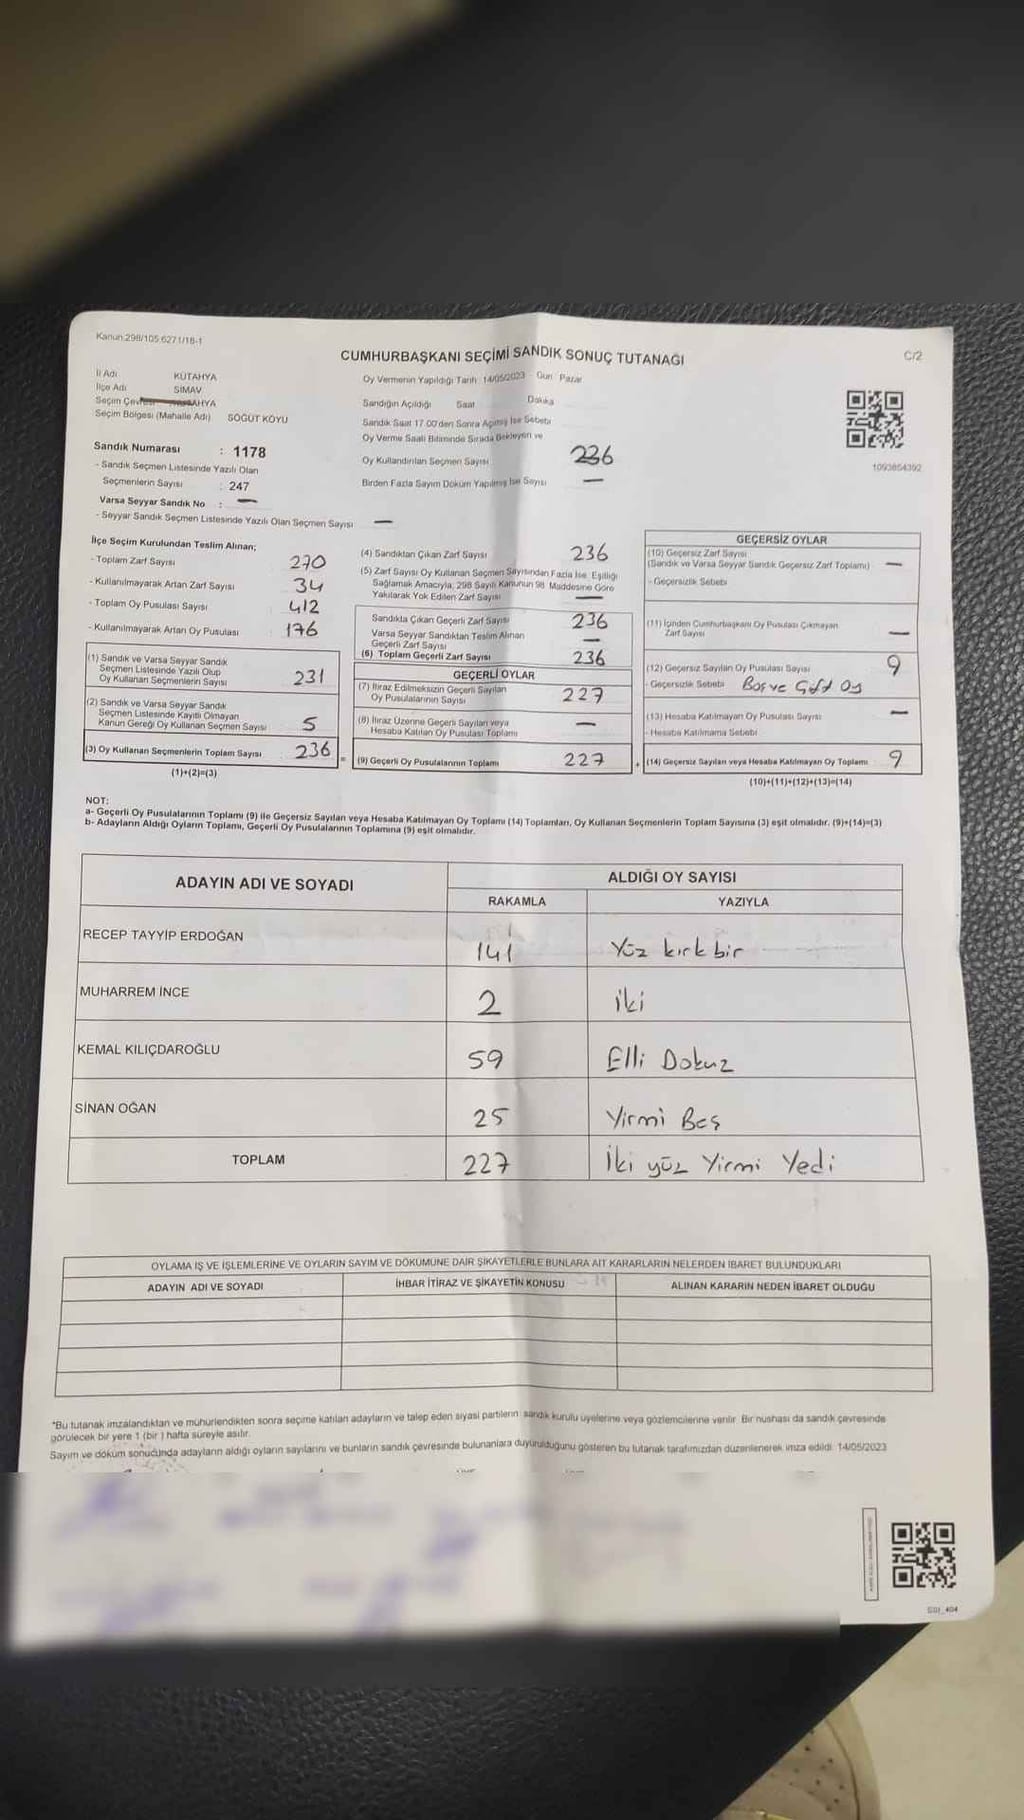 Kanun:298/105,6271/18-1
C/2
CUMHURBAŞKANI SEÇİMİ SANDIK SONUÇ TUTANAĞI
İl Adı KÜTAHYA
İlçe Adı SİMAV
Seçim AHYA
Seçim Bölgesi (Mahalle Adı) SÖĞÜT KÖYÜ
Oy Vermenin Yapıldığı Tarih 14/05/2023 Gün Pazar
Sandığın Açıldığı Saat Dakika
Sandık Saat 17.00'den Sonra Açılmış İse Sebebi
Oy Verme Saati Bitiminde Sırada Bekleyen ve
Oy Kullandırılan Seçmen Sayısı 236
Birden Fazla Sayım Döküm Yapılmış İse Sayısı —
1093854392
Sandık Numarası : 1178
- Sandık Seçmen Listesinde Yazılı Olan
Seçmenlerin Sayısı : 247
Varsa Seyyar Sandık No : —
- Seyyar Sandık Seçmen Listesinde Yazılı Olan Seçmen Sayısı —
İlçe Seçim Kurulundan Teslim Alınan;
- Toplam Zarf Sayısı 270
- Kullanılmayarak Artan Zarf Sayısı 34
- Toplam Oy Pusulası Sayısı 412
- Kullanılmayarak Artan Oy Pusulası 176
(1) Sandık ve Varsa Seyyar Sandık
Seçmen Listesinde Yazılı Olup
Oy Kullanan Seçmenlerin Sayısı 231
(2) Sandık ve Varsa Seyyar Sandık
Seçmen Listesinde Kayıtlı Olmayan
Kanun Gereği Oy Kullanan Seçmen Sayısı 5
(3) Oy Kullanan Seçmenlerin Toplam Sayısı 236
(1)+(2)=(3)
(4) Sandıktan Çıkan Zarf Sayısı 236
(5) Zarf Sayısı Oy Kullanan Seçmen Sayısından Fazla İse, Eşitliği
Sağlamak Amacıyla, 298 Sayılı Kanunun 98. Maddesine Göre
Yakılarak Yok Edilen Zarf Sayısı —
Sandıkta Çıkan Geçerli Zarf Sayısı 236
Varsa Seyyar Sandıktan Teslim Alınan
Geçerli Zarf Sayısı —
(6) Toplam Geçerli Zarf Sayısı 236
GEÇERLİ OYLAR
(7) İtiraz Edilmeksizin Geçerli Sayılan
Oy Pusulalarının Sayısı 227
(8) İtiraz Üzerine Geçerli Sayılan veya
Hesaba Katılan Oy Pusulası Toplamı —
= (9) Geçerli Oy Pusulalarının Toplamı 227
GEÇERSİZ OYLAR
(10) Geçersiz Zarf Sayısı
(Sandık ve Varsa Seyyar Sandık Geçersiz Zarf Toplamı) —
- Geçersizlik Sebebi
(11) İçinden Cumhurbaşkanı Oy Pusulası Çıkmayan
Zarf Sayısı —
(12) Geçersiz Sayılan Oy Pusulası Sayısı 9
- Geçersizlik Sebebi Boş ve Çift Oy
(13) Hesaba Katılmayan Oy Pusulası Sayısı —
- Hesaba Katılmama Sebebi
+ (14) Geçersiz Sayılan veya Hesaba Katılmayan Oy Toplamı 9
(10)+(11)+(12)+(13)=(14)
NOT:
a- Geçerli Oy Pusulalarının Toplamı (9) ile Geçersiz Sayılan veya Hesaba Katılmayan Oy Toplamı (14) Toplamları, Oy Kullanan Seçmenlerin Toplam Sayısına (3) eşit olmalıdır. (9)+(14)=(3)
b- Adayların Aldığı Oyların Toplamı, Geçerli Oy Pusulalarının Toplamına (9) eşit olmalıdır.
ADAYIN ADI VE SOYADI ALDIĞI OY SAYISI
RAKAMLA YAZIYLA
RECEP TAYYİP ERDOĞAN 141 Yüz kırk bir
MUHARREM İNCE 2 iki
KEMAL KILIÇDAROĞLU 59 Elli Dokuz
SİNAN OĞAN 25 Yirmi Beş
TOPLAM 227 İki yüz Yirmi Yedi
OYLAMA İŞ VE İŞLEMLERİNE VE OYLARIN SAYIM VE DÖKÜMÜNE DAİR ŞİKAYETLERLE BUNLARA AİT KARARLARIN NELERDEN İBARET BULUNDUKLARI
ADAYIN ADI VE SOYADI İHBAR İTİRAZ VE ŞİKAYETİN KONUSU ALINAN KARARIN NEDEN İBARET OLDUĞU
*Bu tutanak imzalandıktan ve mühürlendikten sonra seçime katılan adayların ve talep eden siyasi partilerin sandık kurulu üyelerine veya gözlemcilerine verilir. Bir nushası da sandık çevresinde
görülecek bir yere 1 (bir ) hafta süreyle asılır.
Sayım ve döküm sonucunda adayların aldığı oyların sayılarını ve bunların sandık çevresinde bulunanlara duyurulduğunu gösteren bu tutanak tarafımızdan düzenlenerek imza edildi. 14/05/2023